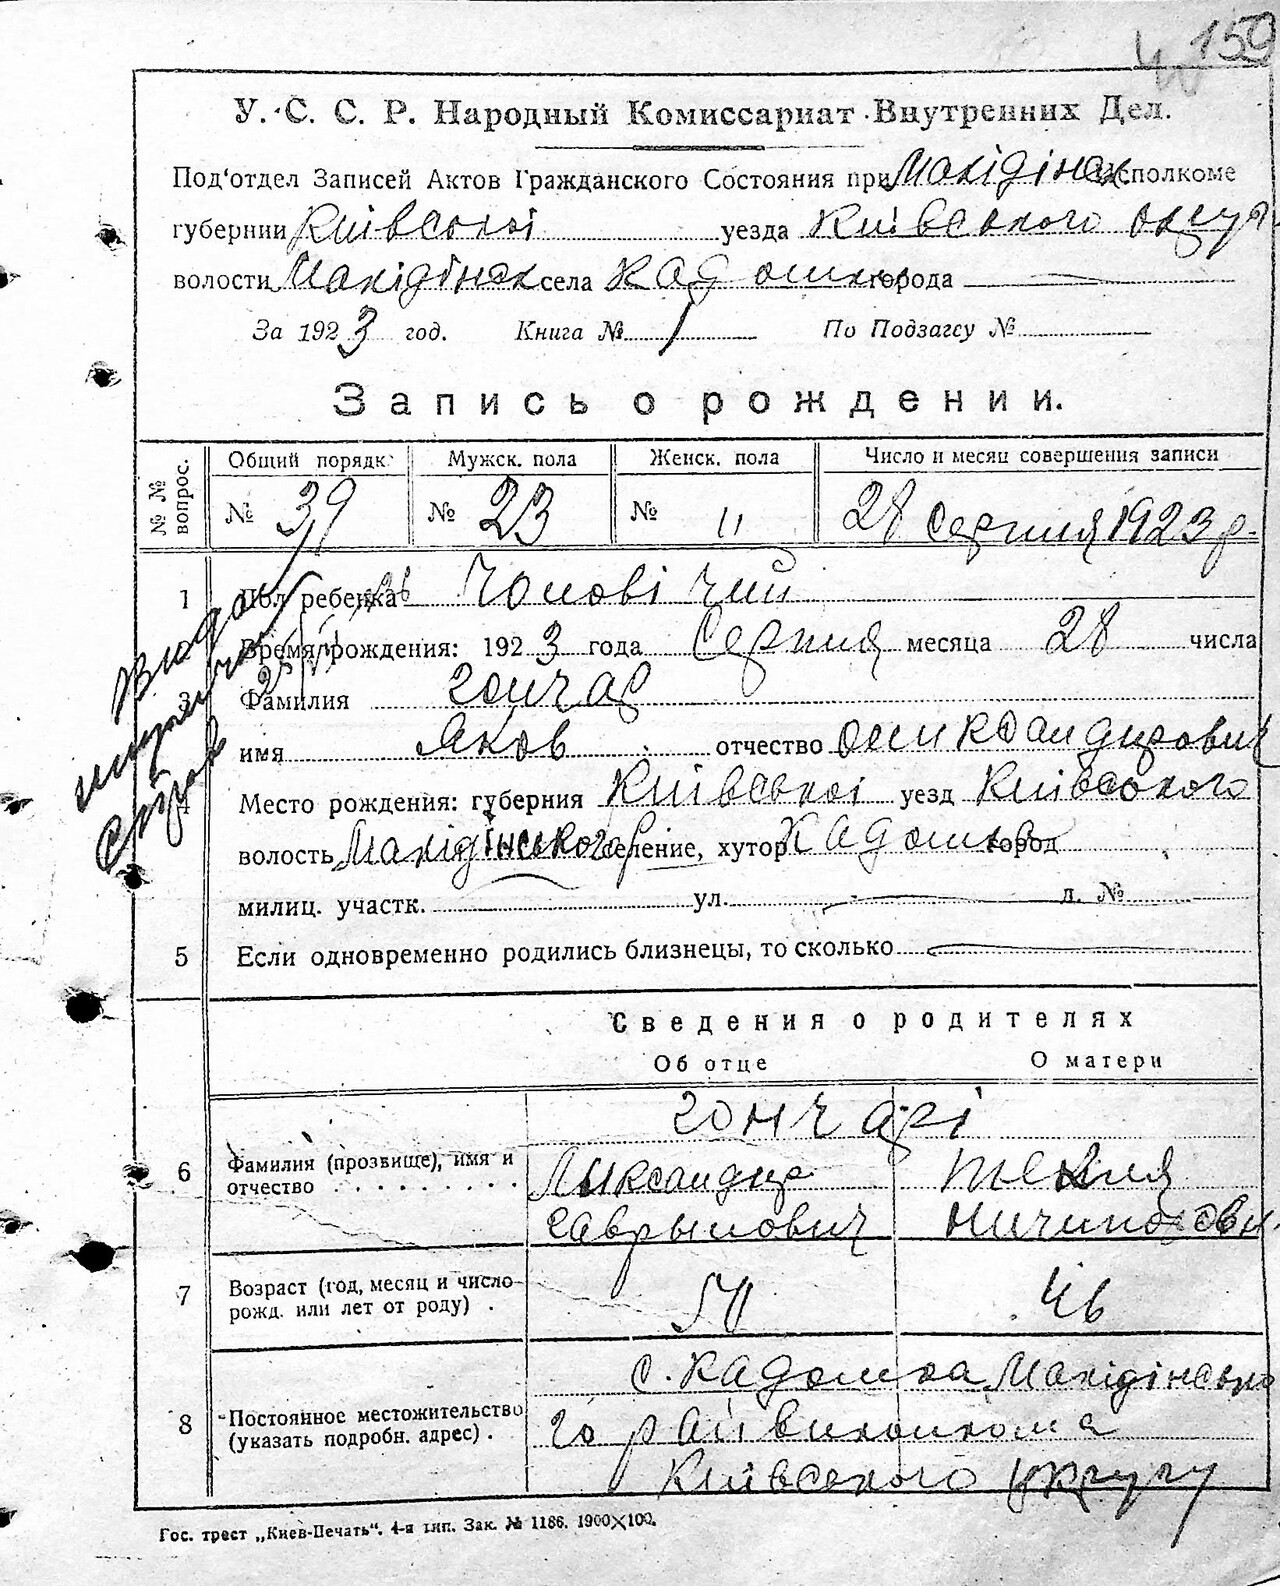 159
У. С. С. Р. Народный Комиссариат Внутренних Дел.
Под'отдел Записей Актов Гражданского Состояния при Махідінск Исполкоме
губернии Київської уезда Київського округ
волости Махідінск села Кадомка города
За 1923 год. Книга № 1 По Подзагсу №
Запись о рождении.
№ № вопрос. Общий порядк. Мужск. пола Женск. пола Число и месяц совершения записи
№ 39 № 23 № " 28 Серпня 1923 р.
1 Пол ребенка Чоловічий
Время рождения: 1923 года Серпня месяца 28 числа
3 Фамилия Гончар
имя Яков отчество Олександрович
4 Место рождения: губерния Київської уезд Київського
волость Махідінського р селение, хутор Кадомка город
милиц. участк. ул. д. №
5 Если одновременно родились близнецы, то сколько
Сведения о родителях
Об отце О матери
Гончарі
6 Фамилия (прозвище), имя и отчество Лыксандр Текля
Гаврылович Ничипоровн.
7 Возраст (год, месяц и число рожд. или лет от роду) 50 46
с. Кадомка Махідінсько
8 Постоянное местожительство (указать подробн. адрес) го райвиконкома
Київського округу
Гос. трест „Киев-Печать". 4-я тип. Зак. № 1186. 1900×100.